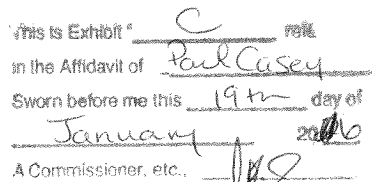 This is Exhibit " C
in the Affidavit of Paul Casey
Sworn before me this 19th day of
January 2016
A Commissioner, etc.,